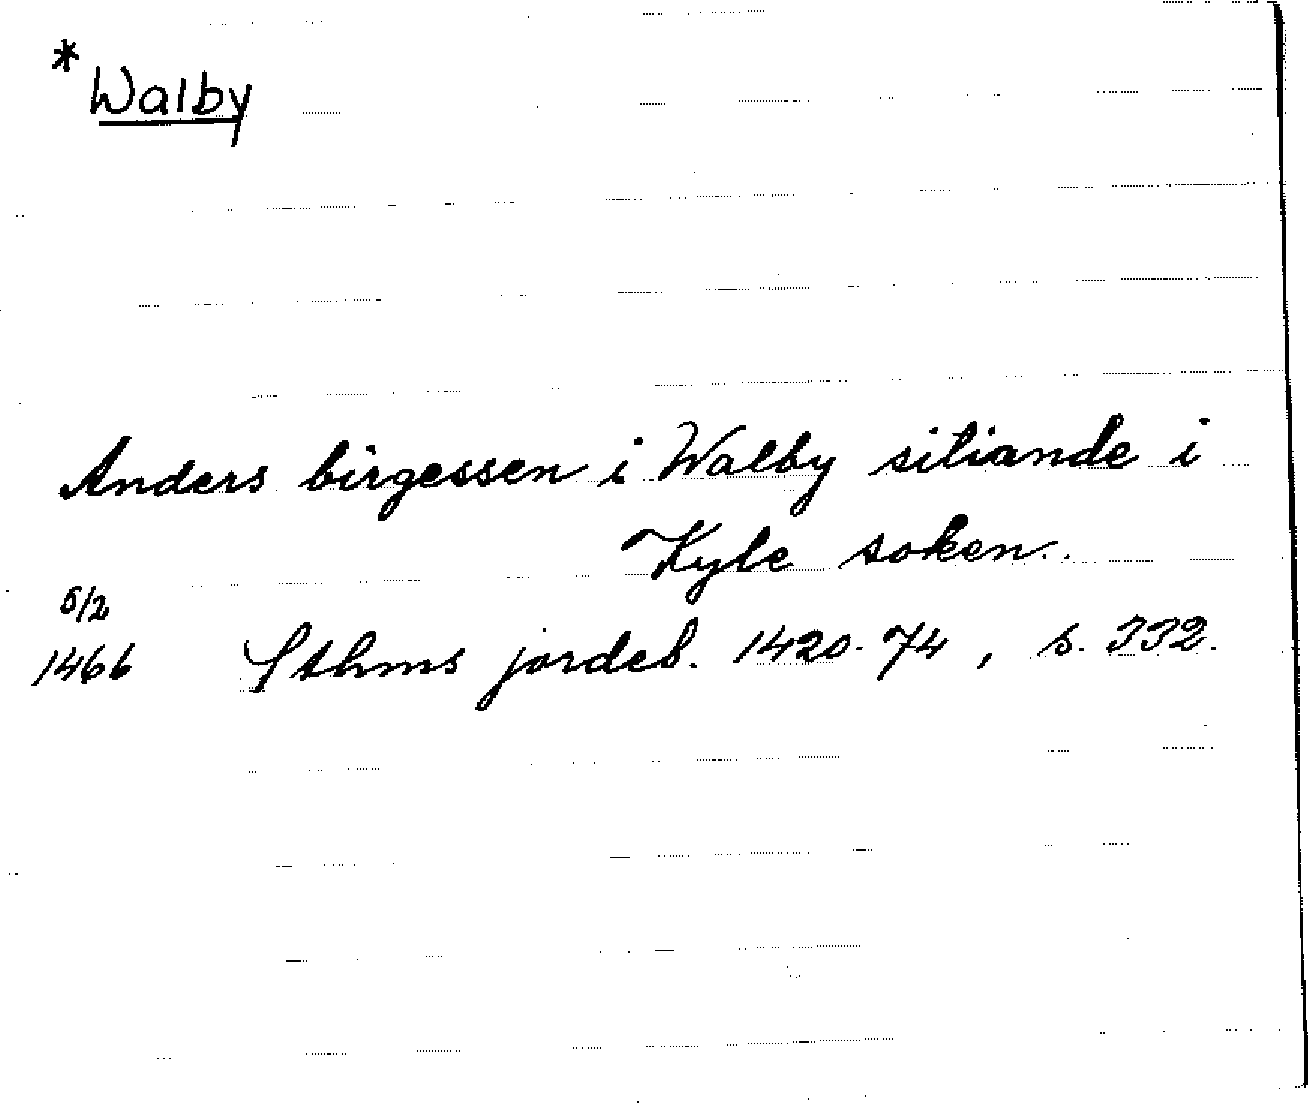 *
Walby
Anders birgessen i Walby sitiande i
Kyle soken.
5/2
1466 Sthms jordeb. 1420-74, s. 332.